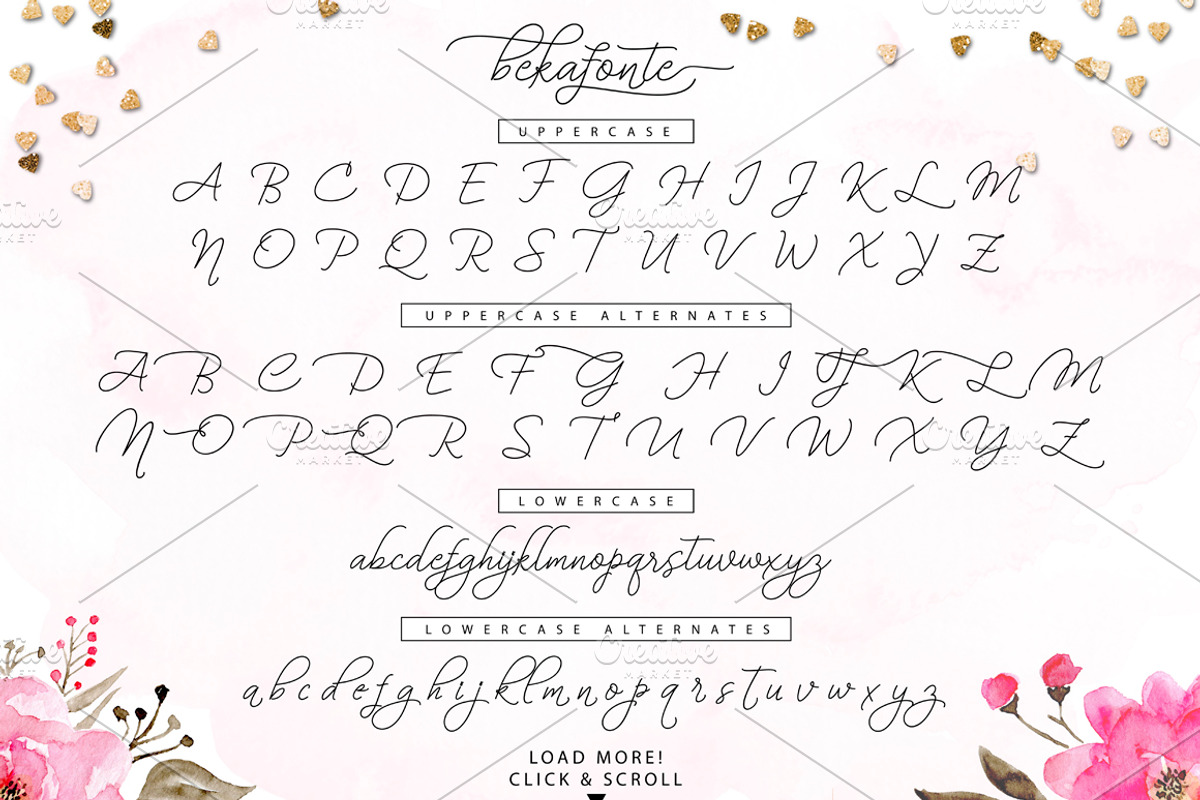 bekafonte
UPPERCASE
A B C D E F G H I J K L M
N O P Q R S T U V W X Y Z
UPPERCASE ALTERNATES
A B C D E F G H I J K L M
N O P Q R S T U V W X Y Z
LOWERCASE
abcdefghijklmnopqrstuvwxyz
LOWERCASE ALTERNATES
a b c d e f g h i j k l m n o p q r s t u v w x y z
LOAD MORE!
CLICK & SCROLL
Creative
MARKET